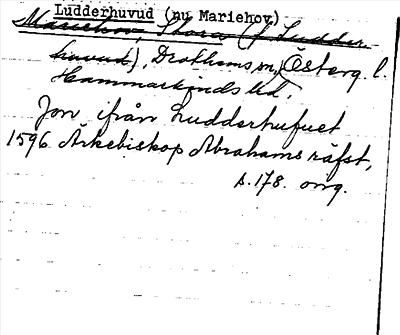 Ludderhuvud (nu Mariehov)
Mariehov Stora (f. Ludder
huvud), Drothems sn, Österg. l.
Hammarkinds hd.
Jon ifrån Ludderhufuet
1596. Ärkebiskop Abrahams räfst,
s. 178. orig.